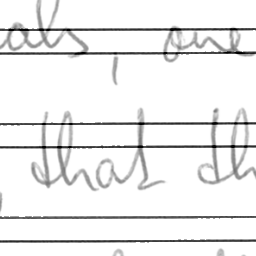 als, one
that th